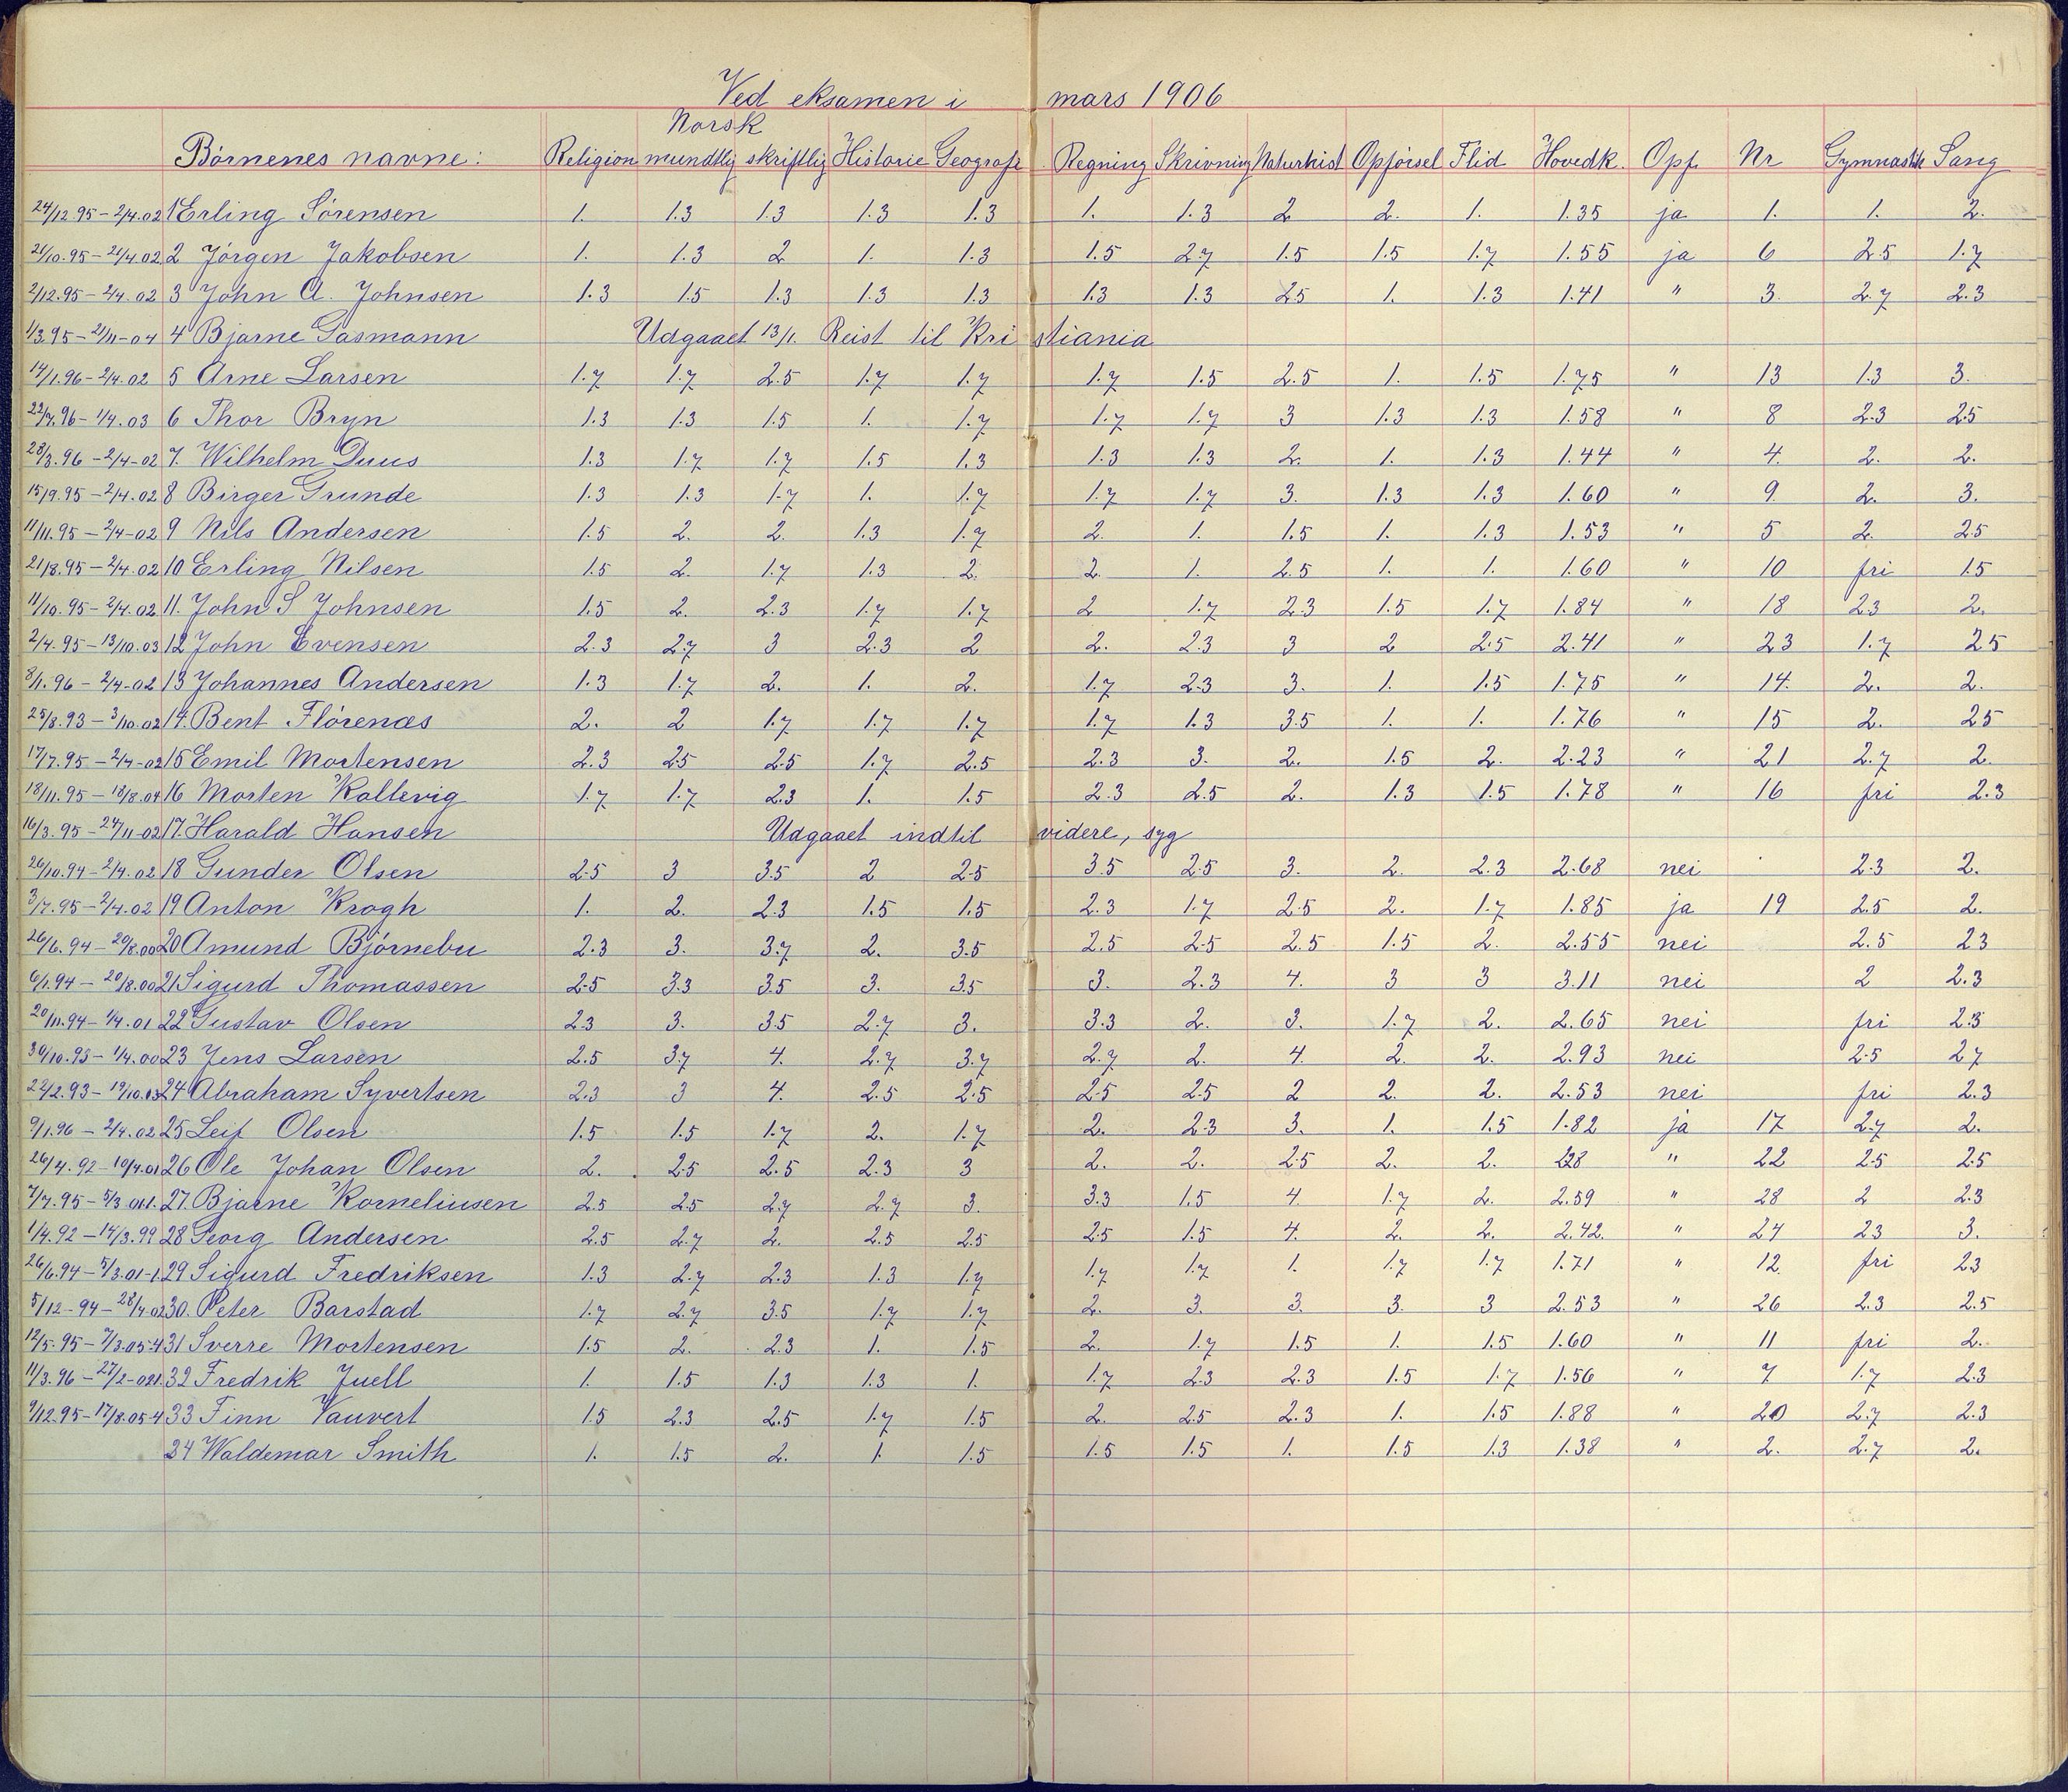 Ved eksamen i mars 1906
Norsk
Börnenes navne: Religion mundtlig skriftlig Historie Geografi Regning Skrivning Naturhist Opförsel Flid Hovedk. Opf Nr Gymnastik Sang
24/12.95 - 2/4.02 1 Erling Sörensen 1. 1.3 1.3 1.3 1.3 1. 1.3 2 2. 1. 1.35 ja 1. 1. 2.
21/10.95 - 21/4.02 2 Jörgen Jakobsen 1. 1.3 2 1. 1.3 1.5 2.7 1.5 1.5 1.7 1.55 ja 6 2.5 1.7
2/12.95 - 2/4.02 3 John A. Johnsen 1.3 1.5 1.3 1.3 1.3 1.3 1.3 2.5 1. 1.3 1.41 " 3. 2.7 2.3
1/3.95 - 21/11-04 4 Bjarne Gasmann Udgaaet 13/1. Reist til Kristiania
14/1.96 - 2/4.02 5 Arne Larsen 1.7 1.7 2.5 1.7 1.7 1.7 1.5 2.5 1. 1.5 1.75 " 13 1.3 3.
22/7.96 - 1/4.03 6 Thor Bryn 1.3 1.3 1.5 1. 1.7 1.7 1.7 3 1.3 1.3 1.58 " 8 2.3 2.5
28/3.96 - 2/4-02 7. Wilhelm Duus 1.3 1.7 1.7 1.5 1.3 1.3 1.3 2. 1. 1.3 1.44 " 4. 2. 2.
15/9.95 - 2/4.02 8 Birger Grunde 1.3 1.3 1.7 1. 1.7 1.7 1.7 3. 1.3 1.3 1.60 " 9. 2. 3.
11/11.95 - 2/4-02 9 Nils Andersen 1.5 2. 2. 1.3 1.7 2. 1. 1.5 1. 1.3 1.53 " 5 2. 2.5
21/8.95 - 2/4.02 10 Erling Nilsen 1.5 2. 1.7 1.3 2. 2. 1. 2.5 1. 1. 1.60 " 10 fri 1.5
11/10.95 - 2/4.02 11. John S Johnsen 1.5 2. 2.3 1.7 1.7 2 1.7 2.3 1.5 1.7 1.84 " 18 2.3 2.
2/4.95 - 13/10.03 12 John Evensen 2.3 2.7 3 2.3 2 2. 2.3 3 2 2.5 2.41 " 23 1.7 2.5
8/1.96 - 2/4-02 13 Johannes Andersen 1.3 1.7 2. 1. 2. 1.7 2.3 3. 1. 1.5 1.75 " 14. 2. 2.
25/8.93 - 3/10.02 14. Bent Flörenæs 2. 2 1.7 1.7 1.7 1.7 1.3 3.5 1. 1. 1.76 " 15 2. 2.5
17/7.95 - 2/4-02 15 Emil Mortensen 2.3 2.5 2.5 1.7 2.5 2.3 3. 2. 1.5 2. 2.23 " 21 2.7 2.
18/11.95 - 18/8.04 16 Morten Kallevig 1.7 1.7 2.3 1. 1.5 2.3 2.5 2. 1.3 1.5 1.78 " 16 fri 2.3
16/3.95 - 24/11-02 17. Harald Hansen Udgaaet indtil videre, syg
26/10.94 - 2/4.02 18 Gunder Olsen 2.5 3 3.5 2 2.5 3.5 2.5 3. 2. 2.3 2.68 nei 2.3 2.
3/7.95 - 2/4.02 19 Anton Krogh 1. 2. 2.3 1.5 1.5 2.3 1.7 2.5 2. 1.7 1.85 ja 19 2.5 2.
26/6.94 - 20/8.00 20 Amund Björnebu 2.3 3. 3.7 2. 3.5 2.5 2.5 2.5 1.5 2. 2.55 nei 2.5 2.3
6/1.94 - 20/8.00 21 Sigurd Thomassen 2.5 3.3 3.5 3. 3.5 3. 2.3 4. 3 3 3.11 nei 2 2.3
20/11.94 - 1/4.01 22 Gustav Olsen 2.3 3. 3.5 2.7 3. 3.3 2. 3. 1.7 2. 2.65 nei fri 2.3
30/10.93 - 1/4.00 23 Jens Larsen 2.5 3.7 4. 2.7 3.7 2.7 2. 4. 2. 2. 2.93 nei 2.5 2.7
22/2.93 - 19/10.03 24 Abraham Syvertsen 2.3 3 4. 2.5 2.5 2.5 2.5 2 2. 2. 2.53 nei fri 2.3
9/1.96 - 2/4.02 25 Leif Olsen 1.5 1.5 1.7 2. 1.7 2. 2.3 3. 1. 1.5 1.82 ja 17 2.7 2.
26/4.92 - 10/4.01 26 Ole Johan Olsen 2. 2.5 2.5 2.3 3 2. 2. 2.5 2. 2. 2.28 " 22 2.5 2.5
7/7.95 - 5/3.01.1. 27. Bjarne Korneliusen 2.5 2.5 2.7 2.7 3. 3.3 1.5 4 1.7 2. 2.59 " 28 2 2.3
1/4.92 - 14/3.99 28 Georg Andersen 2.5 2.7 2. 2.5 2.5 2.5 1.5 4. 2. 2. 2.42. " 24 2.3 3.
26/6.94 - 5/3.01-1. 29 Sigurd Fredriksen 1.3 2.7 2.3 1.3 1.7 1.7 1.7 1. 1.7 1.7 1.71 " 12. fri 2.3
5/12-94 - 28/4.02 30. Peter Barstad 1.7 2.7 3.5 1.7 1.7 2. 3. 3. 3. 3 2.53 " 26 2.3 2.5
12/5.95 - 7/3.05.4 31 Sverre Mortensen 1.5 2. 2.3 1. 1.5 2. 1.7 1.5 1. 1.5 1.60 " 11 fri 2.
11/3.96 - 27/2-02 1. 32 Fredrik Juell 1. 1.5 1.3 1.3 1. 1.7 2.3 2.3 1.5 1.7 1.56 " 7 1.7 2.3
9/12.95 - 17/8.05-4 33 Finn Vauvert 1.5 2.3 2.5 1.7 1.5 2. 2.5 2.3 1. 1.5 1.88 " 20 2.7 2.3
34 Waldemar Smith 1. 1.5 2. 1 1.5 1.5 1.5 1. 1.5 1.3 1.38 " 2. 2.7 2.